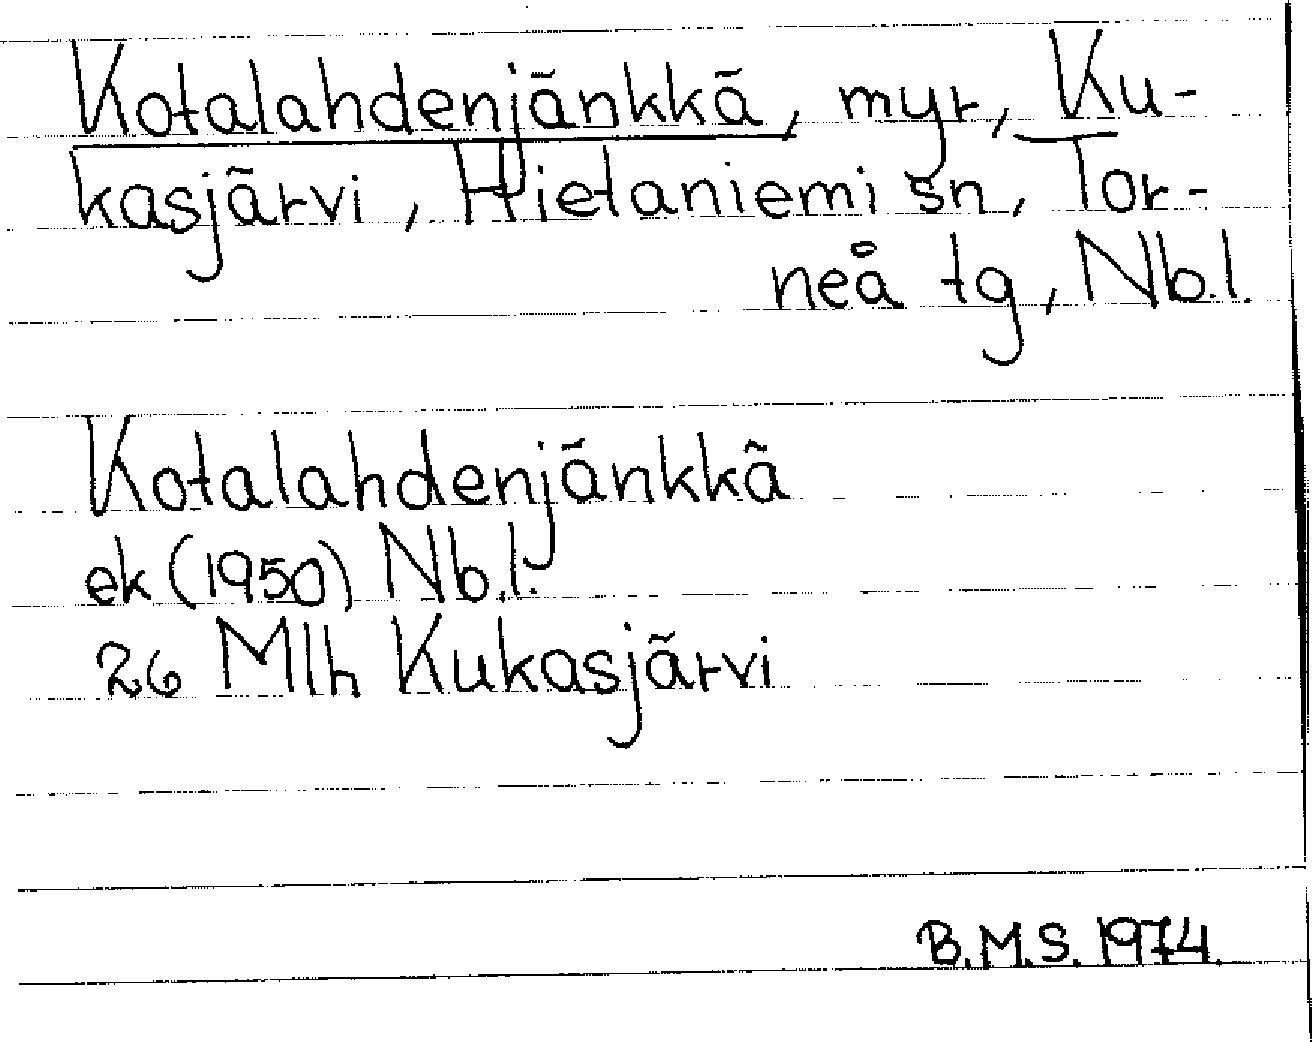 Kotalahdenjänkkä, myr, Ku-
kasjärvi, Hietaniemi sn, Tor-
neå tg, Nb.l.
Kotalahdenjänkkä
ek (1950) Nb.l.
26 Mlh Kukasjärvi
B.M.S. 1974.